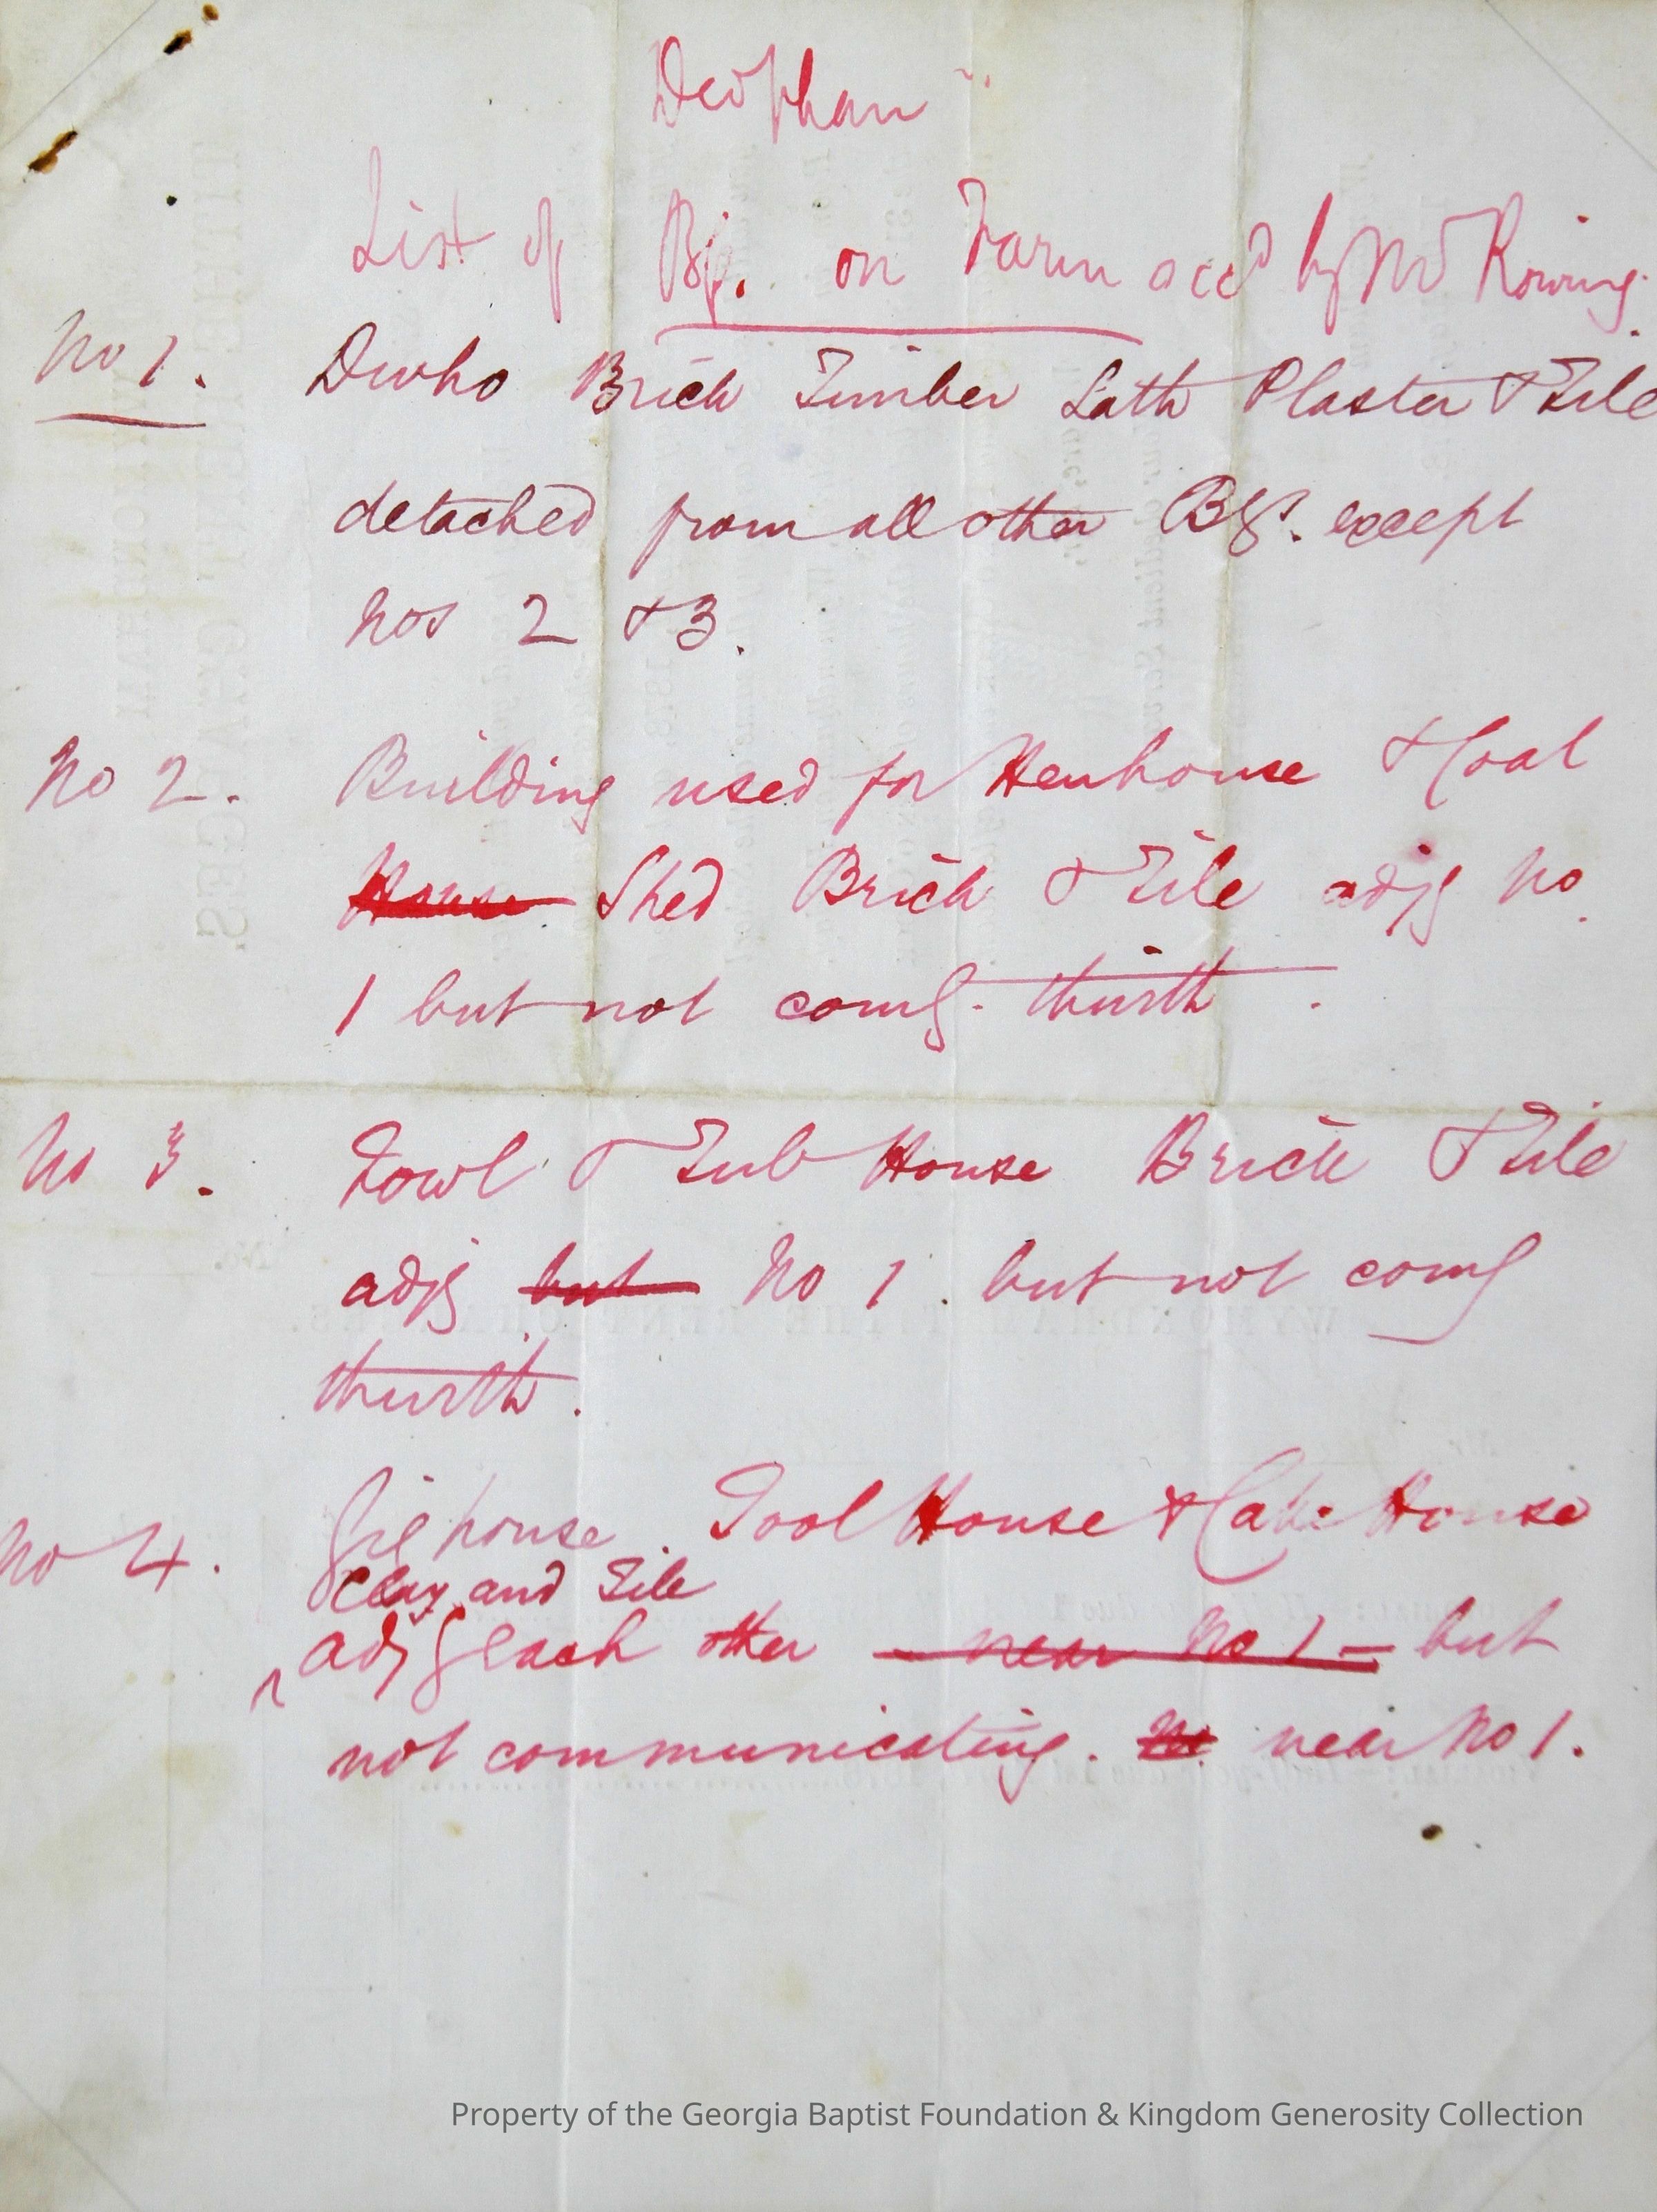 Deopham
List of Bgs. on Farm occd by Mr Rowing.
No 1. Dwho Brick Timber Lath Plaster & Tile
detached from all other Bgs. except
Nos 2 & 3.
No 2. Building used for Henhouse & Coal
House Shed Brick & Tile adjg No.
1 but not comg. thwith.
No 3. Fowl & Tub House Brick & Tile
adjg but No 1. but not comg
thwith.
No 4. Gighouse. Tool House & Cake House
Clay and Tile
adjg each other - near No 1 - but
not communicating. No near No 1.
Property of the Georgia Baptist Foundation & Kingdom Generosity Collection